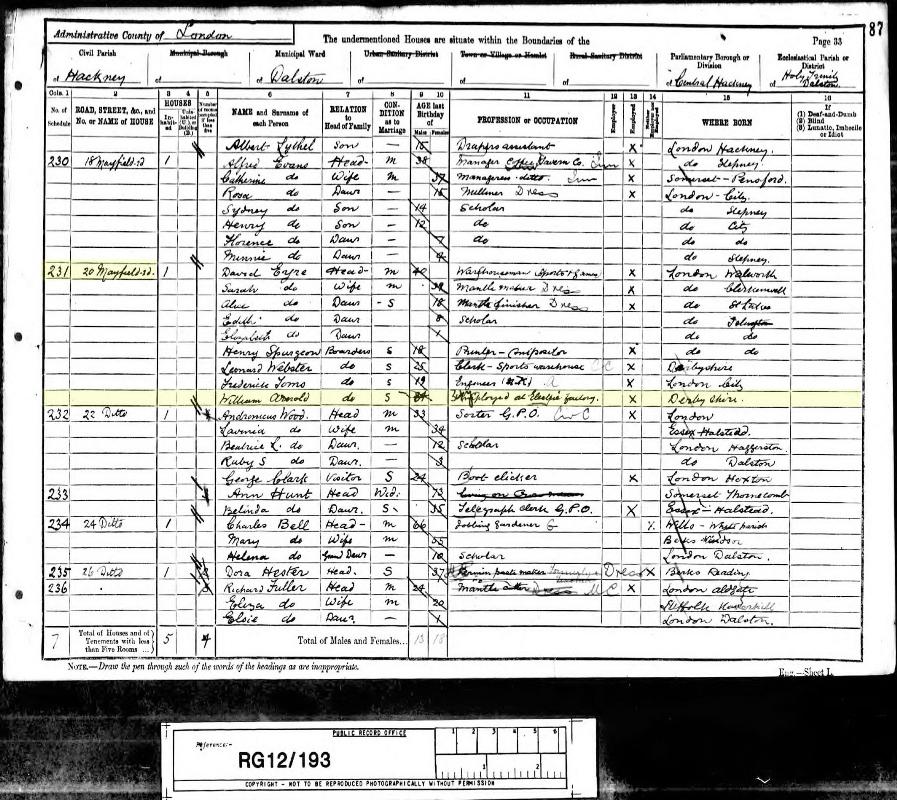 87
Administrative County of London
The undermentioned Houses are situate within the Boundaries of the
Page 33
Civil Parish
of Hackney
Municipal Borough
of
Municipal Ward
of Dalston
Urban Sanitary District
of
Town or Village or Hamlet
of
Rural Sanitary District
of
Parliamentary Borough or Division
of Central Hackney
Ecclesiastical Parish or District
of Holy Trinity Dalston
Cols. 1 2 3 4 5 6 7 8 9 10 11 12 13 14 15 16
No. of Schedule
ROAD, STREET, &c., and No. or NAME of HOUSE
HOUSES
NAME and Surname of each Person
RELATION to Head of Family
CONDITION as to Marriage
AGE last Birthday of
Males Females
PROFESSION or OCCUPATION
Employer
Employed
WHERE BORN
(1) Deaf-and-Dumb
(2) Blind
(3) Lunatic, Imbecile or Idiot
Albert Son — 15 Drapers assistant X London Hackney
230 18 Mayfield rd 1 Alfred Evans Head M 38 Manager Coffee Tavern Co. Inn X do Stepney
Catherine do Wife M 37 Manageress ditto Inn X Somerset - Pensford
Rosa do Daur — 15 Milliner Dress X London City
Sydney do Son — 14 Scholar do Stepney
Henry do Son — 12 do do City
Florence do Daur — 7 do do do
Minnie do Daur — 4 do Stepney
231 20 Mayfield rd. 1 David Eyre Head M 40 Warehouseman Sports & games X London Walworth
Sarah do Wife M 39 Mantle maker Dress X do Clerkenwell
Alice do Daur S 18 Mantle finisher Dress X do St Lukes
Edith do Daur 8 Scholar do Islington
Elizabeth do Daur 1 do do
Henry Spurgeon Boarders S 18 X do do
Leonard Webster do S 25 Clerk - Sports warehouse C C X Derbyshire
Frederick Toms do S 19 Engineer A X London City
William Arnold do S Employed at Electric factory X Derbyshire
232 22 Ditto 1 Andronicus Wood. Head M 33 Sorter G.P.O. Civ C X London
Lavinia do Wife M 34 Essex Halstead.
Beatrice L. do Daur. — 12 Scholar London Haggerston
Ruby S do Daur. — 3 do Dalston
George Clark Visitor S 24 Boot clicker X London Hoxton
233 Ann Hunt Head Wid: 73 Living on Somerset Thornecomb
Belinda do Daur. S 35 Telegraph clerk G.P.O. X Essex - Halstead.
234 24 Ditto 1 Charles Bell Head M 66 Jobbing Gardener G Wilts -
Mary do Wife M 55 Berks Windsor
Helena do Grand Daur — 10 Scholar London Dalston.
235 26 Ditto 1 Dora Hester Head. S 37 Dress X Berks Reading
236 Richard Fuller Head M 24 Mantle cutter Dress M C X London Aldgate
Eliza do Wife M 20 Suffolk Haverhill
Elsie do Daur. 1 London Dalston.
7 Total of Houses and of Tenements with less than Five Rooms ... 5 4 Total of Males and Females... 13 18
NOTE.—Draw the pen through such of the words of the headings as are inappropriate.
Eng.—Sheet L.
PUBLIC RECORD OFFICE
Reference:-
RG12/193
1 2 3 4 5 6
1 2
COPYRIGHT - NOT TO BE REPRODUCED PHOTOGRAPHICALLY WITHOUT PERMISSION